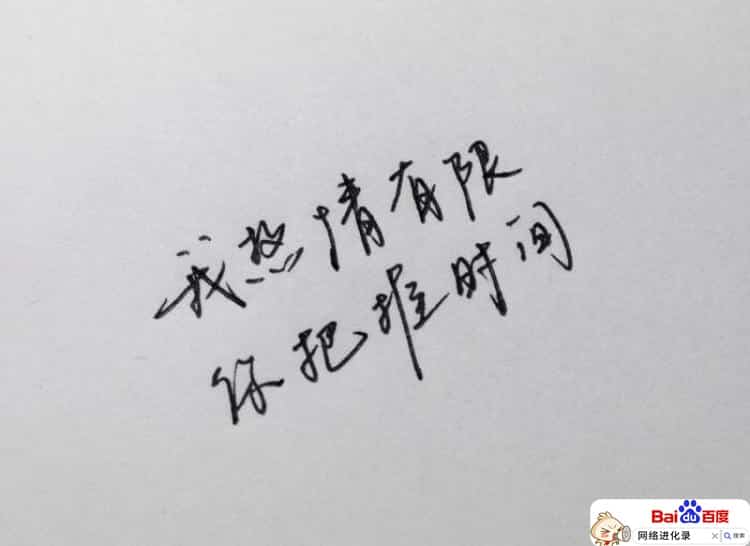 我热情有限
你把握时间
Bai du 百度
网络进化录
搜索